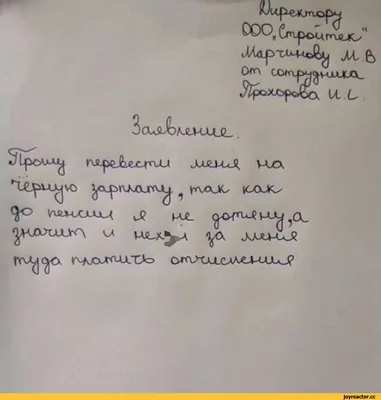 Директору
ООО „Стройтек"
Мартинову М.В
от сотрудника
Прохорова И.С.
Заявление.
Прошу перевести меня на
чёрную зарплату, так как
до пенсии я не дотяну, а
значит и за меня
туда платить отчисления
joyreactor.cc